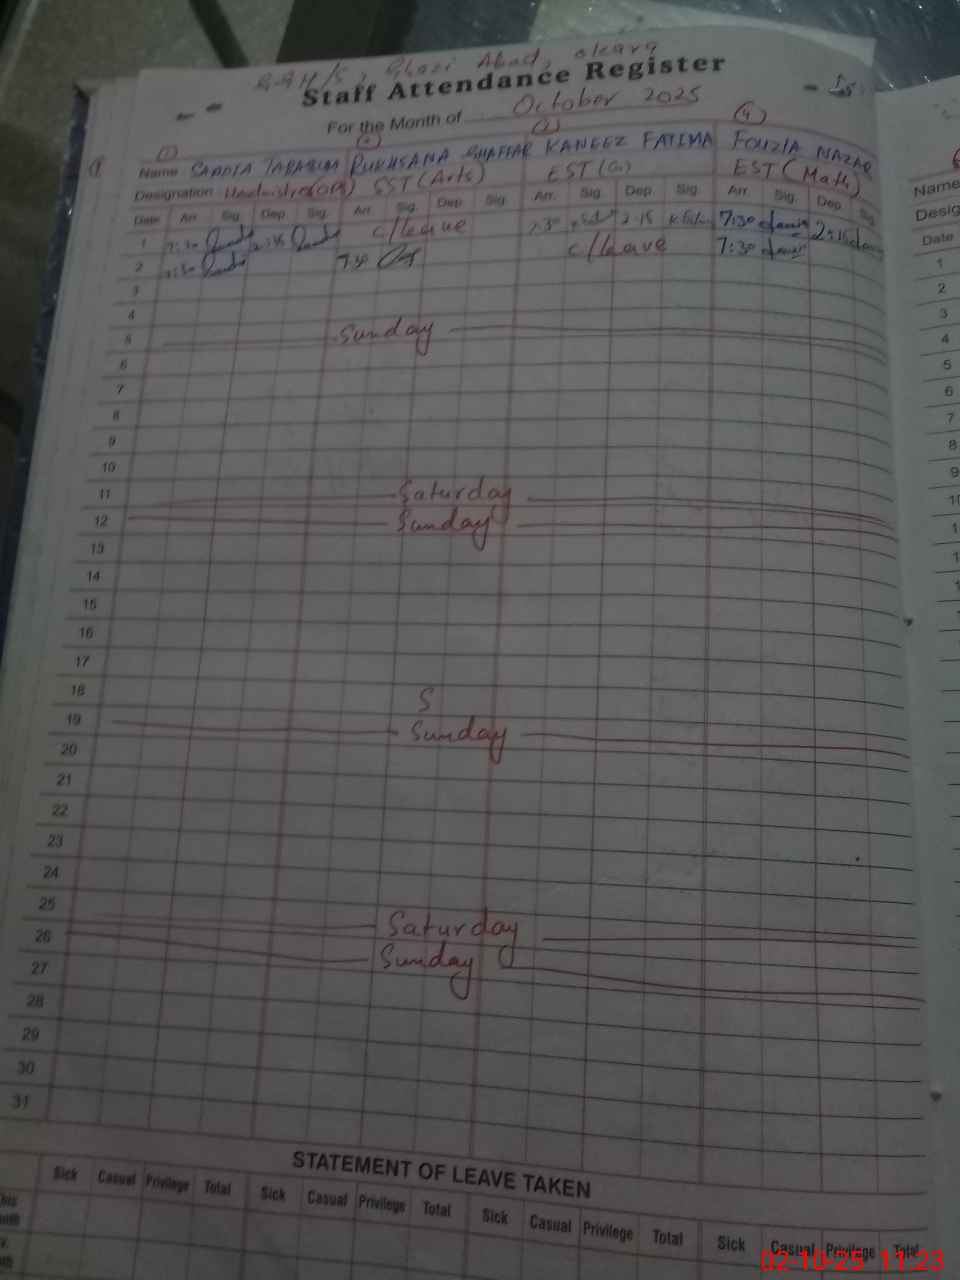 GGH/S, Ghazi Abad,
Staff Attendance Register
For the Month of October 2025
(1) (2) (4)
Name SADIA TABASUM RUKHSANA GHAFFAR KANEEZ FATIMA FOUZIA NAZAR
Designation SST (Arts) EST (G) EST (Math)
Date Arr. Sig. Dep. Sig. Arr. Sig. Dep. Sig. Arr. Sig. Dep. Sig. Arr. Sig. Dep. Sig.
1 7:30 2:15 c/leave 7:30 2:15 7:30
2 7:30 7:30 c/leave 7:30
3
4
5 Sunday
6
7
8
9
10
11 Saturday
12 Sunday
13
14
15
16
17
18 S
19 Sunday
20
21
22
23
24
25 Saturday
26 Sunday
27
28
29
30
31
STATEMENT OF LEAVE TAKEN
Sick Casual Privilege Total Sick Casual Privilege Total Sick Casual Privilege Total Sick Casual Privilege Total
Name
Desig
Date
1
2
3
4
5
6
7
8
9
02-10-25 11:23